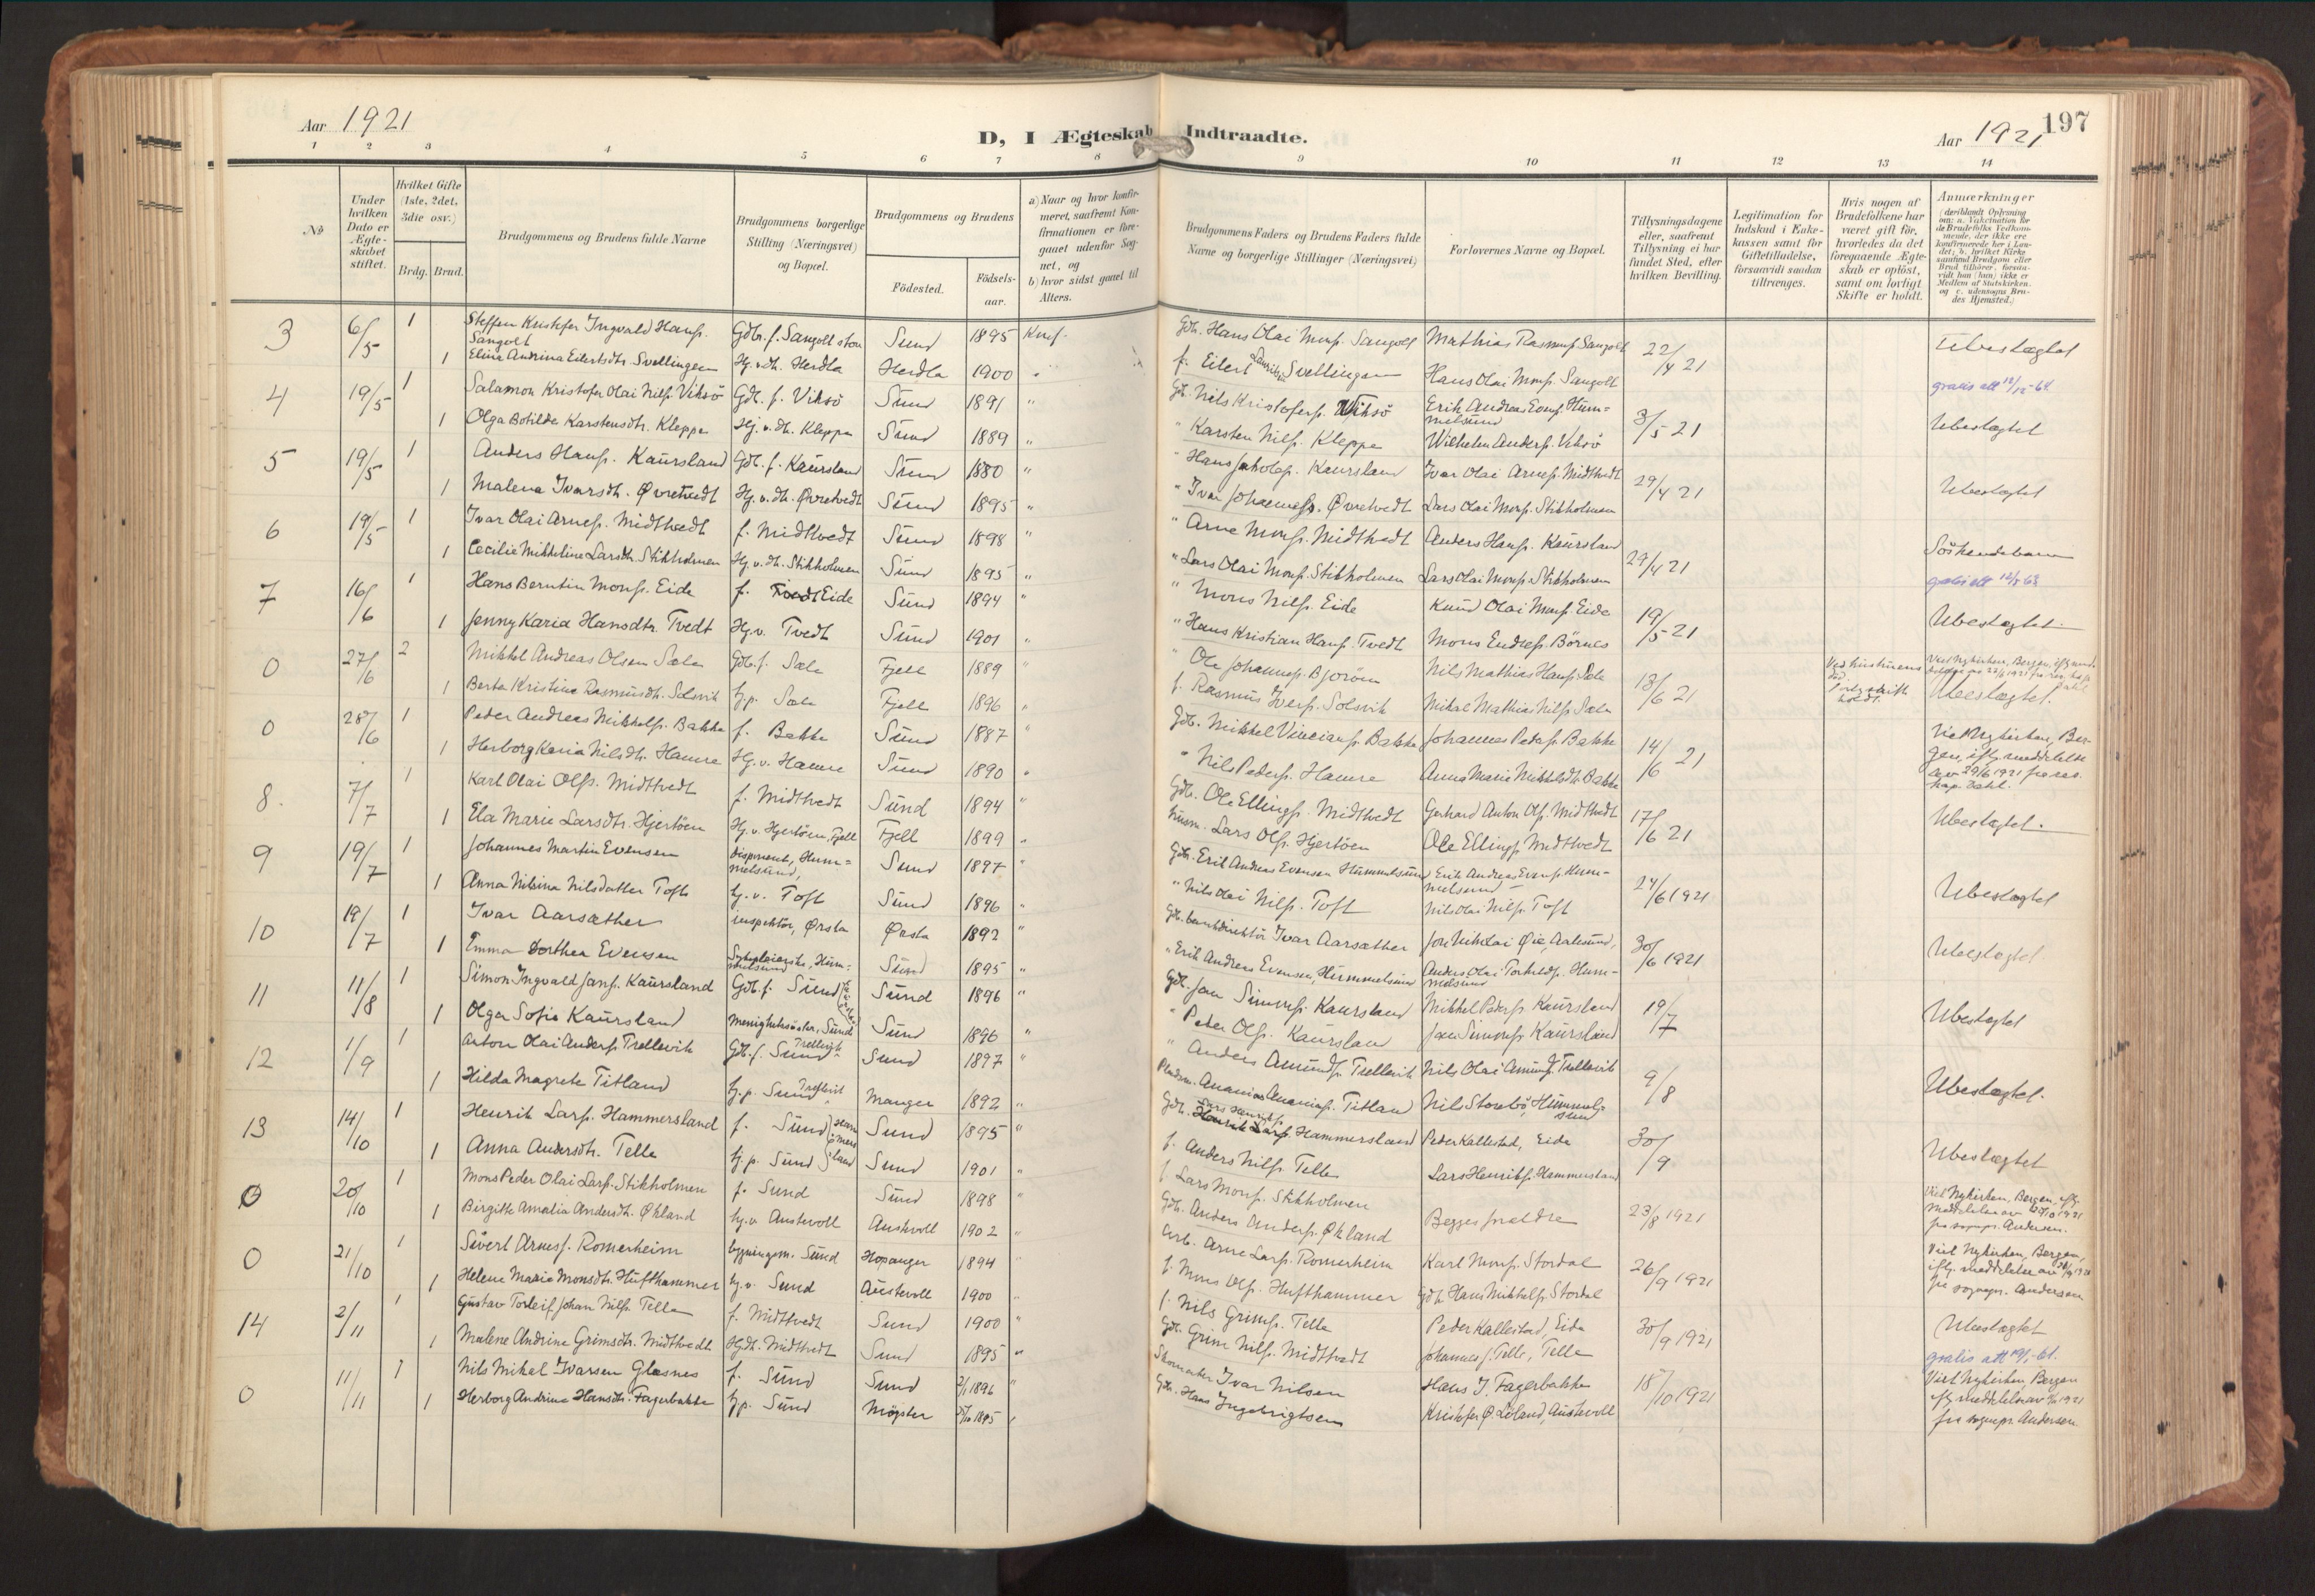 Aar 1921
D, I Ægteskab Indtraadte.
Aar 1921
197
1 2 3 4 5 6 7 8 9 10 11 12 13 14
No
Under hvilken Dato er Ægteskabet stiftet.
Hvilket Gifte (1ste, 2det, 3die osv.)
Brdg. Brud.
Brudgommens og Brudens fulde Navne
Brudgommens borgerlige Stilling (Næringsvei) og Bopæl.
Brudgommens og Brudens
Födested.
Födsels-aar.
a) Naar og hvor konfirmeret, saafremt Konfirmationen er foregaaet udenfor Sognet, og
b) hvor sidst gaaet til Alters.
Brudgommens Faders og Brudens Faders fulde Navne og borgerlige Stillinger (Næringsvei)
Forlovernes Navne og Bopæl.
Tillysningsdagene eller, saafremt Tillysning ei har fundet Sted, efter hvilken Bevilling.
Legitimation for Indskud i Enkekassen samt for Giftetilladelse, forsaavidt saadan tiltrænges.
Hvis nogen af Brudefolkene har været gift för, hvorledes da det foregaaende Ægteskab er oplöst, samt om lovligt Skifte er holdt.
Anmærkninger (deriblandt Oplysning om: a. Vakcination for de Brudefolks Vedkommende, der ikke ere konfirmerede her i Landet; b. hvilket Kirkesamfund Brudgom eller Brud tilhörer, forsaavidt han (hun) ikke er Medlem af Statskirken. og c. udensogns Brudes Hjemsted.)
3 6/5 1 Steffen Kristofer Ingvald Hansp. Sangolt Gdbr. f. Sangolt Sund 1895 Knf. Gdb. Hans Olai Monsp. Sangolt Mathias Rasmusp. Sangolt 22/4 21 Ubeslægtet
1 Eline Andrina Eilertsdtr. Svellingen Hj. v. dh. Herdla Herdla 1900 " f. Eilert Svellingen Hans Olai Monsp. Sangolt
4 19/5 1 Salamon Kristofer Olai Nilsp. Viksö Gdb. f. Viksö Sund 1891 " Gdb. Nils Kristofersp. Viksö Erik Andreas Evensp. Hummelsund 3/5 21 gratis att 12/12-64 Ubeslægtet
1 Olga Botilda Karstensdtr. Kleppe Hj. v. dh. Kleppe Sund 1889 " " Karsten Nilsp. Kleppe Wilhelm Andersp. Viksö
5 19/5 1 Anders Hansp. Kaursland Gdb. f. Kaursland Sund 1880 " " Hans Jakobsp. Kaursland Ivar Olai Arnesp. Midttvedt 29/4 21 Ubeslægtet
1 Malena Ivarsdtr. Øvretvedt Hj. v. dh. Øvretvedt Sund 1895 " " Ivar Johannesp. Øvretvedt Lars Olai Monsp. Stikholmen
6 19/5 1 Ivar Olai Arnesp. Midttvedt f. Midttvedt Sund 1898 " " Arne Monsp. Midttvedt Anders Hansp. Kaursland 29/4 21 Söskendebarn
1 Cecilie Mikkeline Larsdtr. Stikholmen Hj. v. dh. Stikholmen Sund 1895 " " Lars Olai Monsp. Stikholmen Lars Olai Monsp. Stikholmen
7 16/6 1 Hans Berntin Monsp. Eide f. Tvedt Eide Sund 1894 " " Mons Nilsp. Eide Knud Olai Monsp. Eide 19/5 21 Ubeslægtet
1 Jenny Karia Hansdtr. Tvedt Hj. v. Tvedt Sund 1901 " " Hans Kristian Hansp. Tvedt Mons Endresp. Börnes
0 27/6 2 Mikkel Andreas Olsen Sæle Gdb. f. Sæle Fjell 1889 " " Ole Johannesp. Bjoröen Nils Mathias Hansp. Sæle 13/6 21 Ved hustruens död. Viet Nykirken, Bergen,
1 Berta Kristine Rasmusdtr. Solsvik hj. p. Sæle Fjell 1896 " f. Rasmus Iversp. Solsvik Mikal Mathias Nilsp. Sæle Ubeslægtet.
0 28/6 1 Peder Andreas Mikkelsp. Bakke f. Bakke Sund 1887 " Gdb. Mikkel Vinciansp. Bakke Johannes Pedersp. Bakke 14/6 21 Viet Nykirken, Bergen, iflg. meddelelse av 29/6 1921 fra res. kap. Dahl.
1 Herborg Karia Nilsdtr. Hamre Hj. v. Hamre Sund 1890 " " Nils Pedersp. Hamre Anna Marie Mikkelsdtr. Bakke
8. 7/7 1 Karl Olai Olsp. Midttvedt f. Midttvedt Sund 1894 " Gdb. Ole Ellingsp. Midttvedt Gerhard Anton Olsp. Midttvedt 17/6 21 Ubeslægtet.
1 Ela Marie Larsdtr. Hjertöen Hj. v. Hjertöen, Fjell Fjell 1899 " husm. Lars Olsp. Hjertöen Ole Ellingsp. Midttvedt
9 19/7 1 Johannes Martin Evensen disponent, Hummelsund, Sund 1897 " Gdb. Erik Andreas Evensen Hummelsund Erik Andreas Evensp. Hummelsund 24/6 1921 Ubeslægtet
1 Anna Nilsina Nilsdatter Toft hj. v. Toft Sund 1896 " " Nils Olai Nilsp. Toft Nils Olai Nilsp. Toft
10 19/7 1 Ivar Aarsæther inspektör, Ørsta Ørsta 1892 " Gdb. Ivar Aarsæther Jon Nikolai Øie, Aalesund, 30/6 1921 Ubeslægtet
1 Emma Dorthea Evensen Sykepleierske, Hummelsund Sund 1895 " " Erik Andreas Evensen, Hummelsund Anders Olai Hummelsund
11 11/8 1 Simon Ingvald Jansp. Kaursland Gdb. f. Sund Sund 1896 " Gdb. Jan Simonsp. Kaursland Mikkel Pedersp. Kaursland 19/7 Ubeslægtet
1 Olga Sofie Kaursland Menighetssöster, Sund Sund 1896 " " Peder Olsp. Kaursland Jan Simonsp. Kaursland
12 1/9 1 Anton Olai Andersp. Trellevik Gdb. f. Sund Trellevik Sund 1897 " " Anders Amundsp. Trellevik Nils Olai Amundsp. Trellevik 9/8 Ubeslægtet.
1 Hilda Magrete Titland hj. p. Sund Trellevik Manger 1892 " Pladsm. Ananias Ananiasp. Titland Nils Storebö, Hummelsund
13 14/10 1 Henrik Larsp. Hammersland f. Sund Hammersland Sund 1895 " Gdb. Lars Henriksp. Hammersland Peder Kallestad, Eide 30/9 Ubeslægtet
1 Anna Andersdtr. Telle hj. p. Sund Sund 1901 " f. Anders Nilsp. Telle Lars Henriksp. Hammersland
0 20/10 1 Mons Peder Olai Larsp. Stikholmen f. Sund Sund 1898 " f. Lars Monsp. Stikholmen Begges forældre 23/8 1921 Viet Nykirken, Bergen, iflg. meddelelse av 20/10 1921 fra sognepr. Andersen.
1 Birgitte Amalia Andersdtr. Økland hj. v. Austevoll Austevoll 1902 " Gdb. Anders Andersp. Økland
0 21/10 1 Sivert Arnesp. Romerheim bygningsm. Sund Hopanger 1894 " Arb. Arne Larsp. Romerheim Karl Monsp. Stordal 26/9 1921 Viet Nykirken, Bergen, iflg. meddelelse av fra sognepr. Andersen
1 Helene Marie Monsdtr. Hufthammer hj. v. Sund Austevoll 1900 " f. Mons Olsp. Hufthammer Gdb. Hans Mikkelsp. Stordal
14 2/11 1 Gustav Torleif Johan Nilsp. Telle f. Midttvedt Sund 1900 " f. Nils Grimsp. Telle Peder Kallestad, Eide 30/9 1921 Ubeslægtet
1 Malene Andrine Grimsdtr. Midttvedt Hj. dh. Midttvedt Sund 1895 " Gdb. Grim Nilsp. Midttvedt Johannes J. Telle, Telle gratis att 19/1-61.
0 11/11 1 Nils Mikal Ivarsen Glesnes f. Sund Sund 2/1 1896 " Skomaker Ivar Nilsen Hans J. Fagerbakke 18/10 1921 Viet Nykirken, Bergen iflg. meddelelse av 1921 fra sognepr. Andersen
1 Herborg Andrine Hansdtr. Fagerbakke hj. p. Sund Mögster 1895 Gdb. Hans Ingebrigtsen Kristofer Ø. Löland, Austevoll